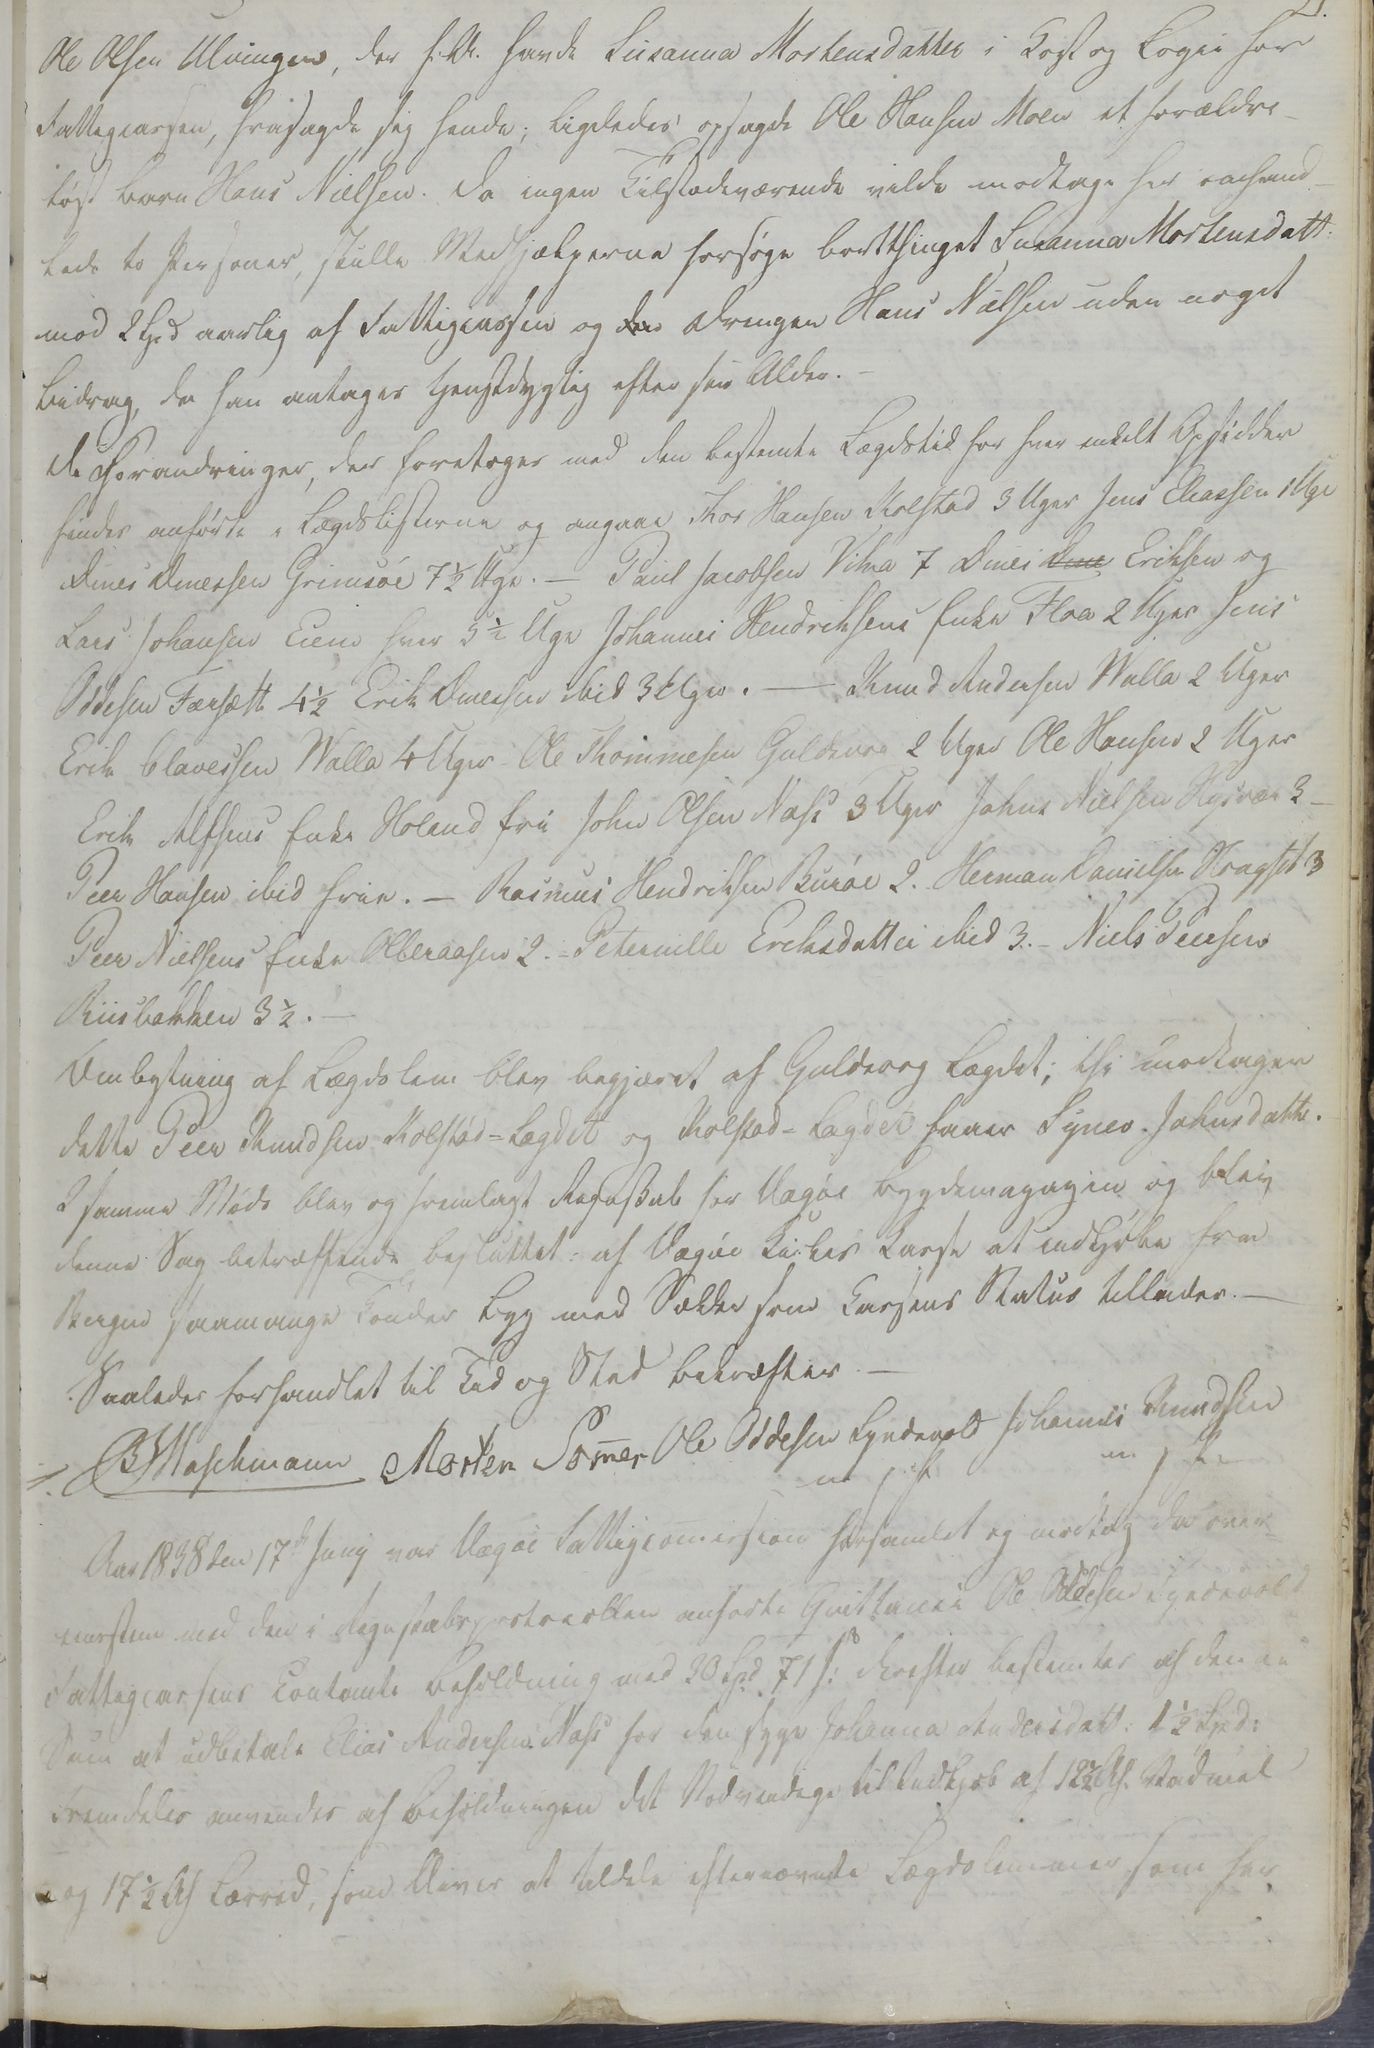 21.
Ole Olsen Ulvingen, der f. A. havde Susanna Mortensdatter i Kost og Logie for
Fattigcassen, frasagde sig hende; ligeledes opsagde Ole Hansen Moen et forældre-
løst Barn Hans Nielsen. Da ingen Tilstedeværende vilde modtage her
to Personer, skulle Medhjælperne forsøge bortthinget Susanna Mortensdatt:
mod 2 Spd aarlig af Fattigcassen og Drengen Hans Nielsen uden noget
Bidrag, da han antages tjenstdygtig efter sin Alder. -
De Forandringer, der foretoges med den bestemte Lægdstid for hver enkelt Opsidder
findes anførte i Lægdslisterne og angaae Thor Hansen Kolstad 3 Uger Jens Eliassen 1 Uge
Dines Dinessen Grimsøe 7½ Uge. - Paul Jacobsen Vilva 7 Dines Eriksen og
Lars Johansen hver 5½ Uge Johannes Hendriksens Enke Floa 2 Uger Jens
Oddesen Forsætt 4½ Erik Dinessen ibid 3 Uger. - Knud Andersen Walla 2 Uger
Erik Clavessen Walla 4 Uger - Ole Thommesen Guldvog 2 Uger Ole Hansen 2 Uger
Erik Alfsens Enke Holand fri John Olsen Nass 3 Uger Johns Nielsen 2 -
Peer Hansen ibid frie. - Rasmus Hendriksen Buröe 2. Herman Danielsen 3
Peer Nielsens Enke Olderaasen 2. - Peternille Eriksdatter ibid 3. - Niels Peersen
Riisbakken 3½. -
Ombytning af Lægdslem blev begjæret af Guldvog Lægdet; thi modtager
dette Peer Knudsen Kolstad-Lægdet og Kolstad-Lægdet faaer Synev. Johnsdatte.
I samme Møde blev og fremlagt Regnskab for Vægöe Bygdemagazin og blev
denne Sag betræffende besluttet: af Vægöe Kirkes Kasse at indkjøbe fra
Bergen saamange Tønder Byg med Sædde som Cassens Status tillader. -
Saaledes forhandlet til Tid og Sted bekræfter -
Maschmann Morten Somer Ole Oddesen Lyndevold Johannes Knudsen
m. p. P. m. p. P.
Aar 1838 den 17de Juny var Vægöe Fattigcomission forsamlet og modtog da over-
med den i Regnskabsprotocollen anførte Qvittance Ole Oddesen Lyndevold
Fattigcassens Contante Beholdning med 20 Spd 71 s: derefter bestemtes af denne
Sum at udbetale Elias Andersen Nass for den syge Johanna Andersdatt: 1½ Spd:
Fremdeles anvendes af Beholdningen det Nødvendige til Indkjøb af 12½ Al. Vadmel
og 17½ Al Lærred, som bliver at tildele efternævnte Lægdslemmer, som her